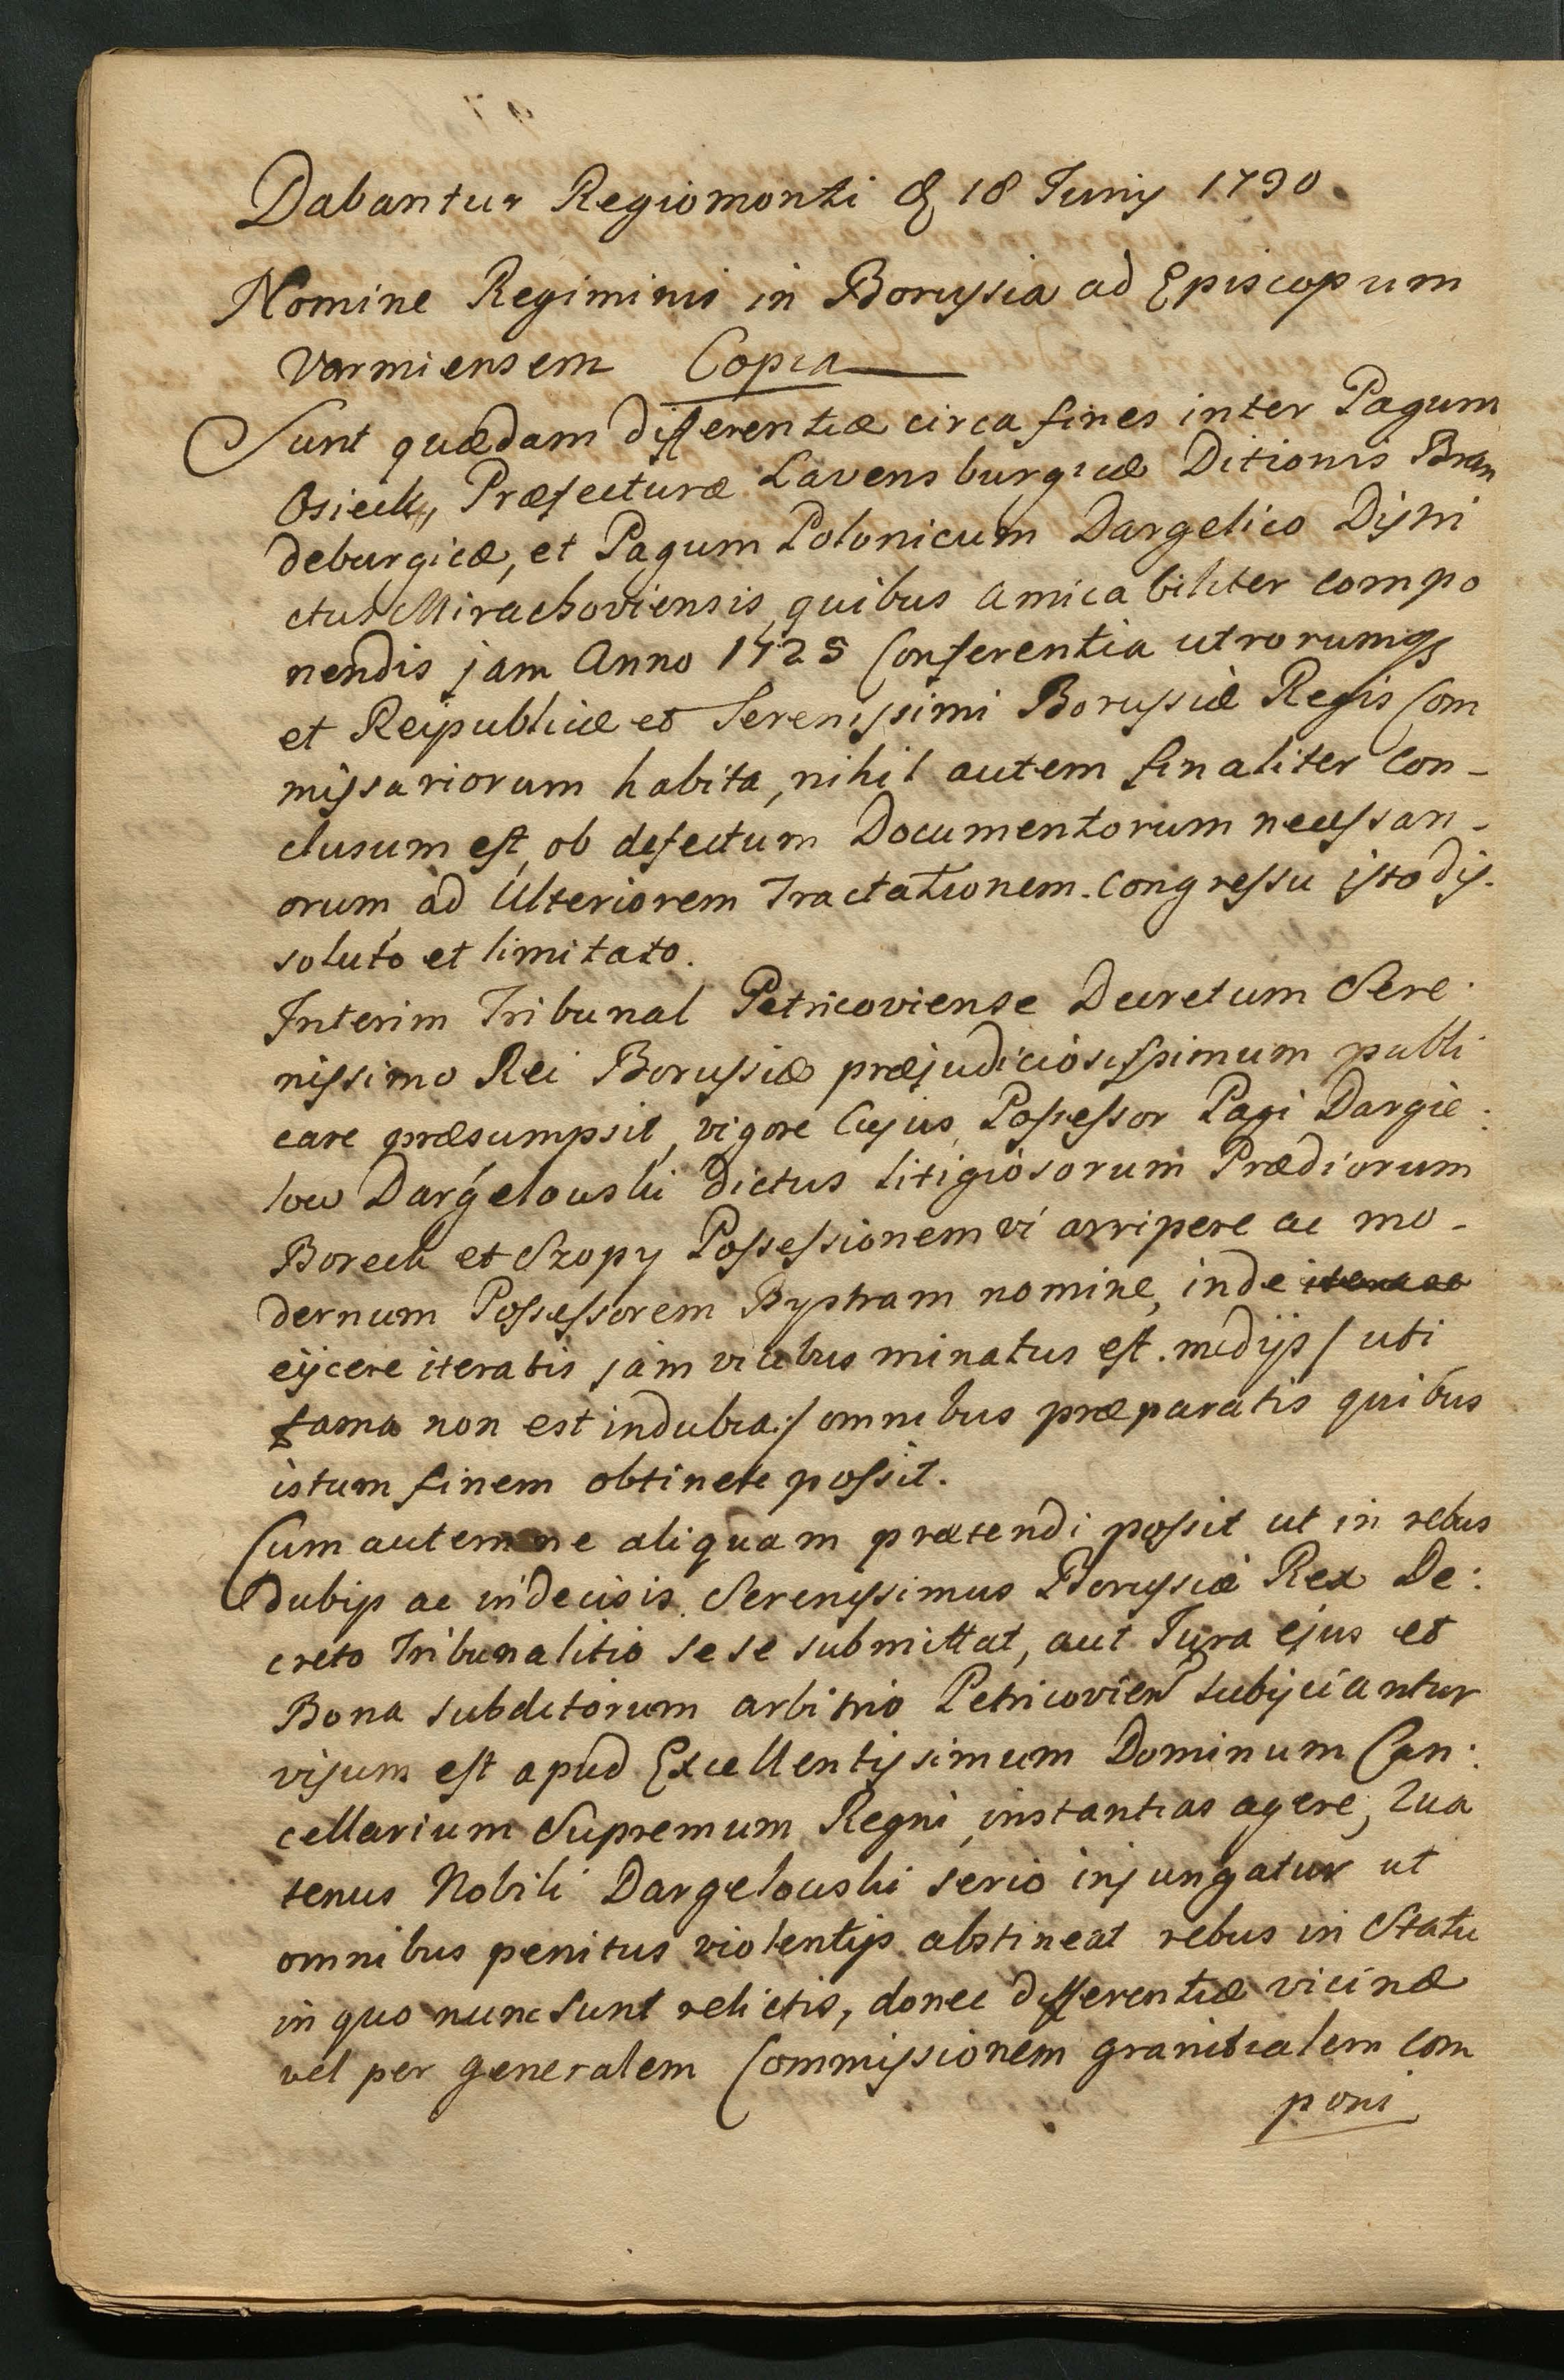 Dabantur Regiomonti d. 18 Junij 1730.
Nomine Regiminis in Borussia ad Episcopum
Varmiensem Copia
Sunt quædam differentiæ circa fines inter Pagum
Osieck, Præfecturæ Lavensburgicæ Ditionis Bran
deburgicæ, et Pagum Polonicum Dargelico Distri
ctus Mirachoviensis, quibus amicabiliter compo
nendis jam Anno 1725 Conferentia utrorumq
et Reipublicæ et Serenissimi Borussiæ Regis Com
missariorum habita, nihil autem finaliter con-
clusum est, ob defectum Documentorum necessari-
orum, ad Ulteriorem Tractationem. Congressu isto dis-
soluto et limitato.
Interim Tribunal Petricoviense Decretum Sere:
nissimo Rei Borussiæ præjudiciosissimum publi
care præsumpsit, vigore Cujus Possessor Pagi Dargie:
low Dargelouski dictus litigiosorum Prædiorum
Boreck et Szopy Possessionem vi arripere ac mo-
dernum Possessorem Bystram nomine, inde
eijcere iteratis jam vicibus minatus est. medijs / uti
fama non est indubia / omnibus præparatis quibus
istum finem obtinere possit.
Cum autem ne aliquam prætendi possit ut in rebus
dubijs ac indecisis Serenissimus Borussiæ Rex De:
creto Tribunalitio sese submittat, aut Jura ejus et
Bona subditorum arbitrio Petricovien subijciantur
visum est apud Excellentissimum Dominum Can:
cellarium Supremum Regni, instantias agere, Qua
tenus Nobili Dargelouski serio injungatur ut
omnibus penitus violentijs abstineat rebus in Statu
in quo nunc sunt relictis, donec differentiæ vicinæ
vel per generalem Commissionem granitialem com
poni